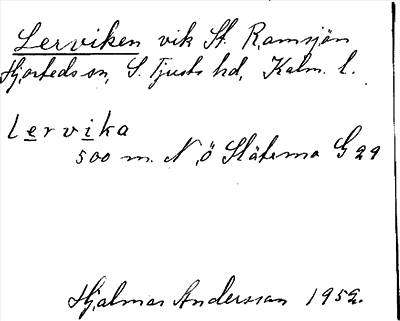 Lerviken vik St. Ramsjön
Hjorteds sn, S. Tjusts hd, Kalm. l.
Lervika
500 m. N, ö Släterna G 29
Hjalmar Andersson 1952.